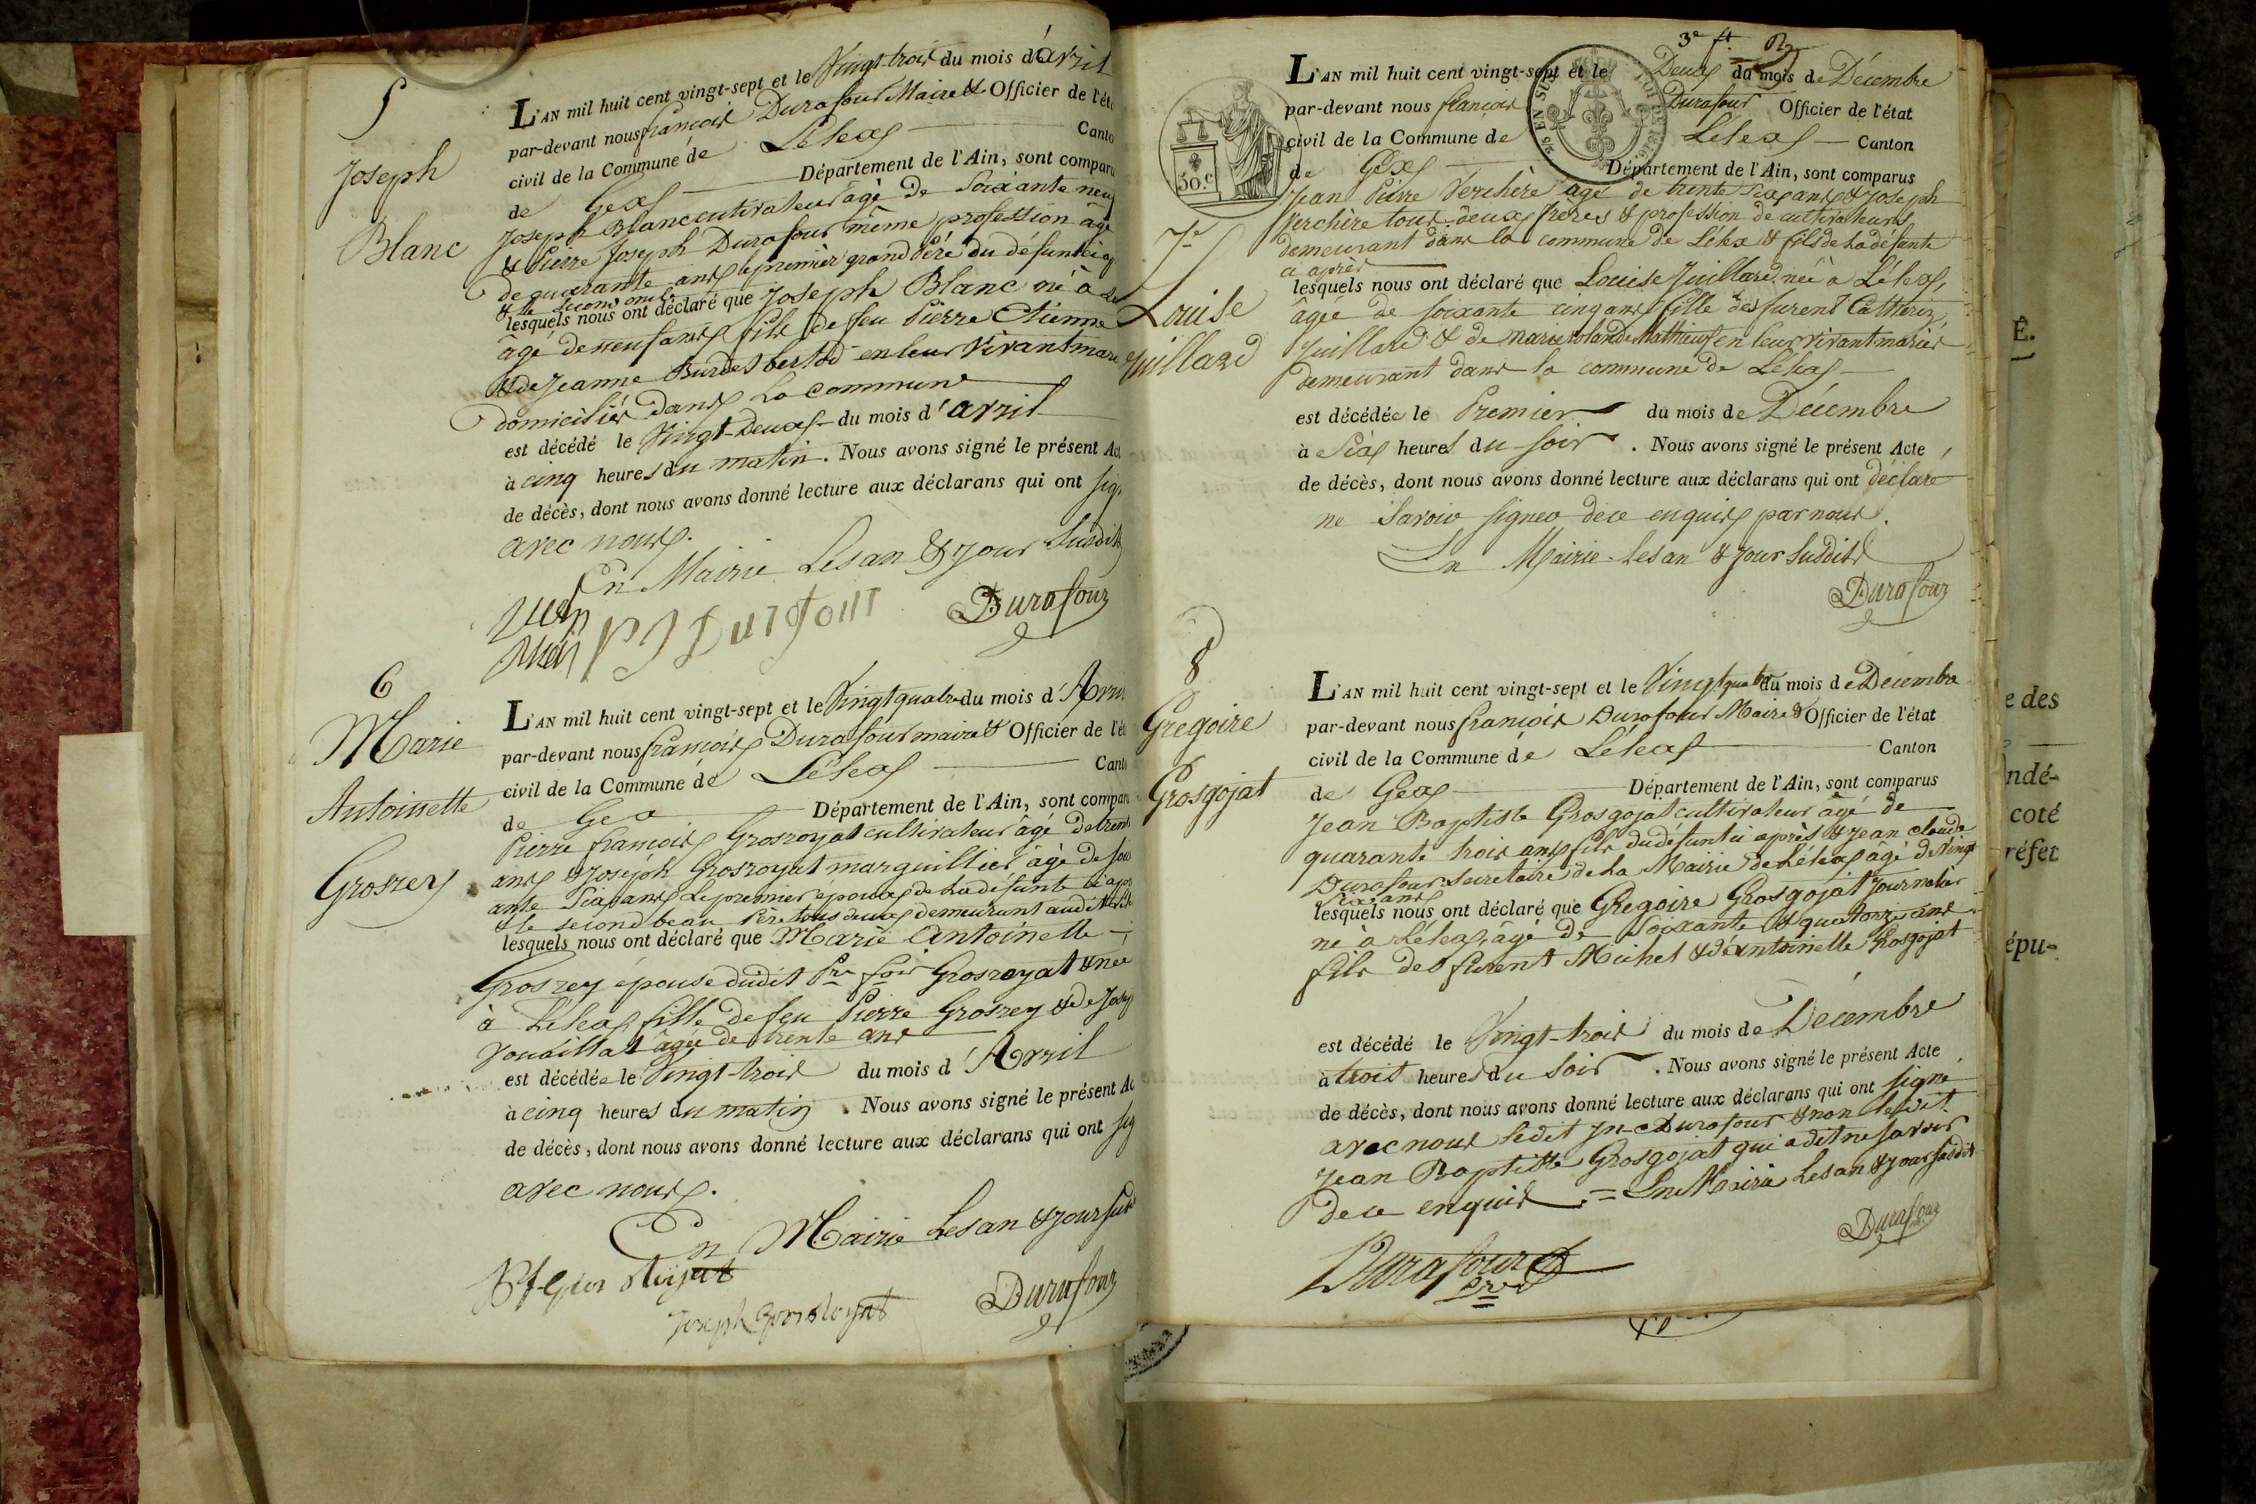 5
Joseph
Blanc
L'AN mil huit cent vingt-sept et le Vingt-trois du mois d'avril
par-devant nous françois Durafour Maire & Officier de l'ét
civil de la Commune de Lélex Canto
de Gex Département de l'Ain, sont comparu
Joseph Blanc cultivateur âgé de soixante neuf
& Pierre Joseph Durafour même profession âgé
de quarante ans le premier grand Père du défunt
& le second oncle
lesquels nous ont déclaré que Joseph Blanc né à Le
âgé de neuf ans fils de feu Pierre Etienne
& de Jeanne en leur vivant mari
domiciliés dans la commune
est décédé le Vingt-Deux du mois d'avril
à cinq heures du matin. Nous avons signé le présent Ac
de décès, dont nous avons donné lecture aux déclarans qui ont sig
avec nous.
En Mairie Les an & jour susdits
P J Durafour Durafour
6
Marie
Antoinette
Grosrey
L'AN mil huit cent vingt-sept et le Vingt quatre du mois d'Avri
par-devant nous françois Durafour maire & Officier de l'ét
civil de la Commune de Lélex Canto
de Gex Département de l'Ain, sont compar
Pierre françois Grosroyat cultivateur âgé de trente
ans & Joseph Grosroyat marguillier âgé de soix
ante Six ans Le premier époux de La défunte ci apr
& le second beau Père tous deux demeurant audit
lesquels nous ont déclaré que Marie Antoinette
Grosrey épouse dudit Pre fois Grosroyat & née
à Lélex fille de feu Pierre Grosrey & de Josep
âgée de trente ans
est décédée le Vingt-trois du mois d'Avril
à cinq heures du matin. Nous avons signé le présent Ac
de décès, dont nous avons donné lecture aux déclarans qui ont sig
avec nous.
En Mairie Les an & jour sus
Joseph grosroyat Durafour
3e ft
50.c
7e
Louise
Juillard
L'AN mil huit cent vingt-sept et le Deux du mois de Décembre
par-devant nous françois Durafour Officier de l'état
civil de la Commune de Lélex Canton
de Gex Département de l'Ain, sont comparus
Jean Pierre Verchère âgé de trente Six ans & Joseph
Verchère tous deux frères & profession de cultivateurs,
demeurant dans la commune de Lélex & fils de La défunte
ci après
lesquels nous ont déclaré que Louise Juillard née à Lélex,
âgée de soixante cinq ans fille des furent Catherin
Juillard & de Marie Mathieu en leur vivant mariés
demeurant dans la commune de Lélex
est décédée le Premier du mois de Décembre
à Six heures du soir. Nous avons signé le présent Acte
de décès, dont nous avons donné lecture aux déclarans qui ont déclaré
ne savoir signer de ce enquis par nous.
En Mairie Les an & jour susdits
Durafour
8
Gregoire
Grosgojat
L'AN mil huit cent vingt-sept et le Vingt quatre du mois de Décembre
par-devant nous françois Durafour Maire & Officier de l'état
civil de la Commune de Lélex Canton
de Gex Département de l'Ain, sont comparus
Jean Baptiste Grosgojat cultivateur âgé de
quarante trois ans fils du défunt ci après & Jean claude
Durafour secretaire de La Mairie de Lélex âgé de Vingt
Six ans
lesquels nous ont déclaré que Gregoire Grosgojat journalier
né à Lélex, âgé de soixante & quatorze ans
fils des furent Michel & d'antoinette Grosgojat
est décédé le Vingt-trois du mois de Décembre
à trois heures du soir. Nous avons signé le présent Acte
de décès, dont nous avons donné lecture aux déclarans qui ont signé
avec nous ledit Jn C Durafour & non ledit
Jean Baptiste Grosgojat qui a dit ne savoir
de ce enquis. = En Mairie Les an & jour susdits
Durafour
Durafour
Ê.
e des
ndé-
coté
réfet
épu-